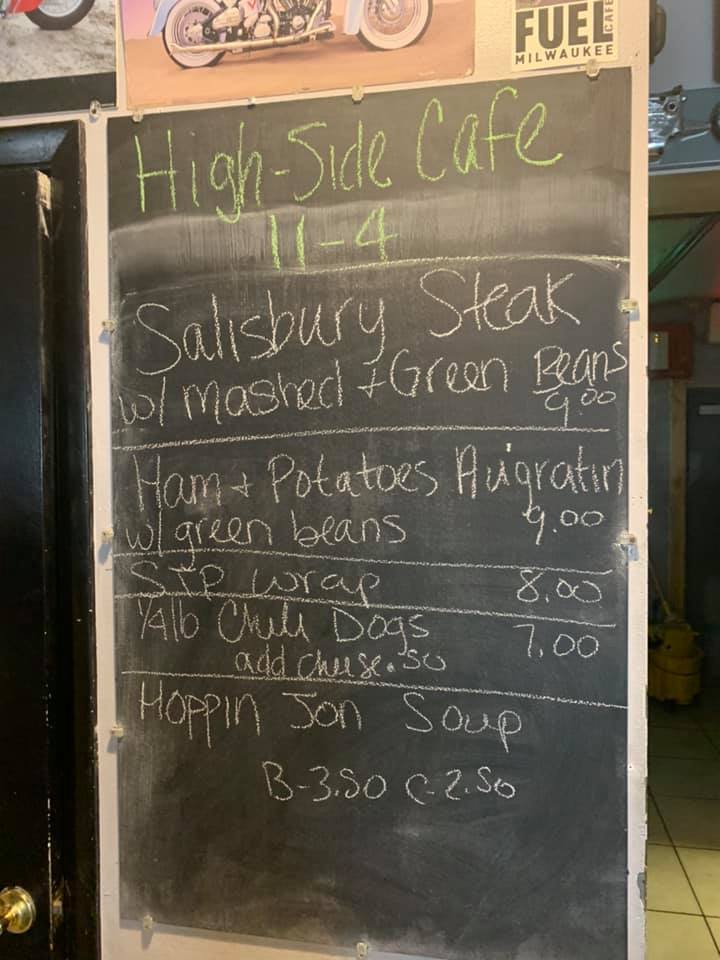 FUEL
CAFE
MILWAUKEE
High-Side Cafe
11-4
Salisbury Steak
w/ mashed + Green Beans
9.00
Ham + Potatoes Augratin
w/ green beans 9.00
STP wrap 8.00
1/4lb Chili Dogs 7.00
add cheese .50
Hoppin Jon Soup
B-3.50 C-2.50